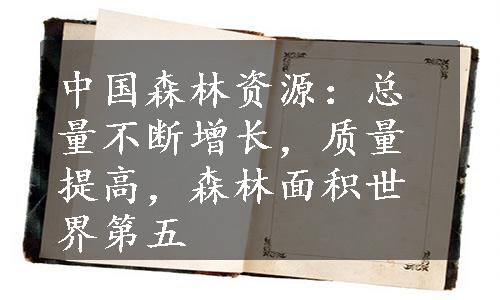 中国森林资源：总
量不断增长，质量
提高，森林面积世
界第五